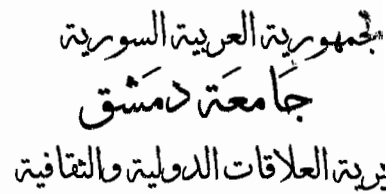 لجمهورية العربية السورية
جَامعَة دمَشق
يرية العلاقات الدولية والثقافية